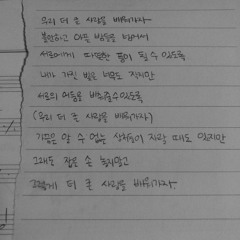 우리 더 큰 사랑을 배워가자
불안하고 아픈 밤들을 넘어서
서로에게 따뜻한 품이 될 수 있도록
내가 가진 빛은 너무도 작지만
서로의 어둠을 비춰줄 수 있도록
(우리 더 큰 사랑을 배워가자)
가끔은 알 수 없는 상처들이 자랄 때도 있지만
그래도 잡은 손 놓지말고
그렇게 더 큰 사랑을 배워가자